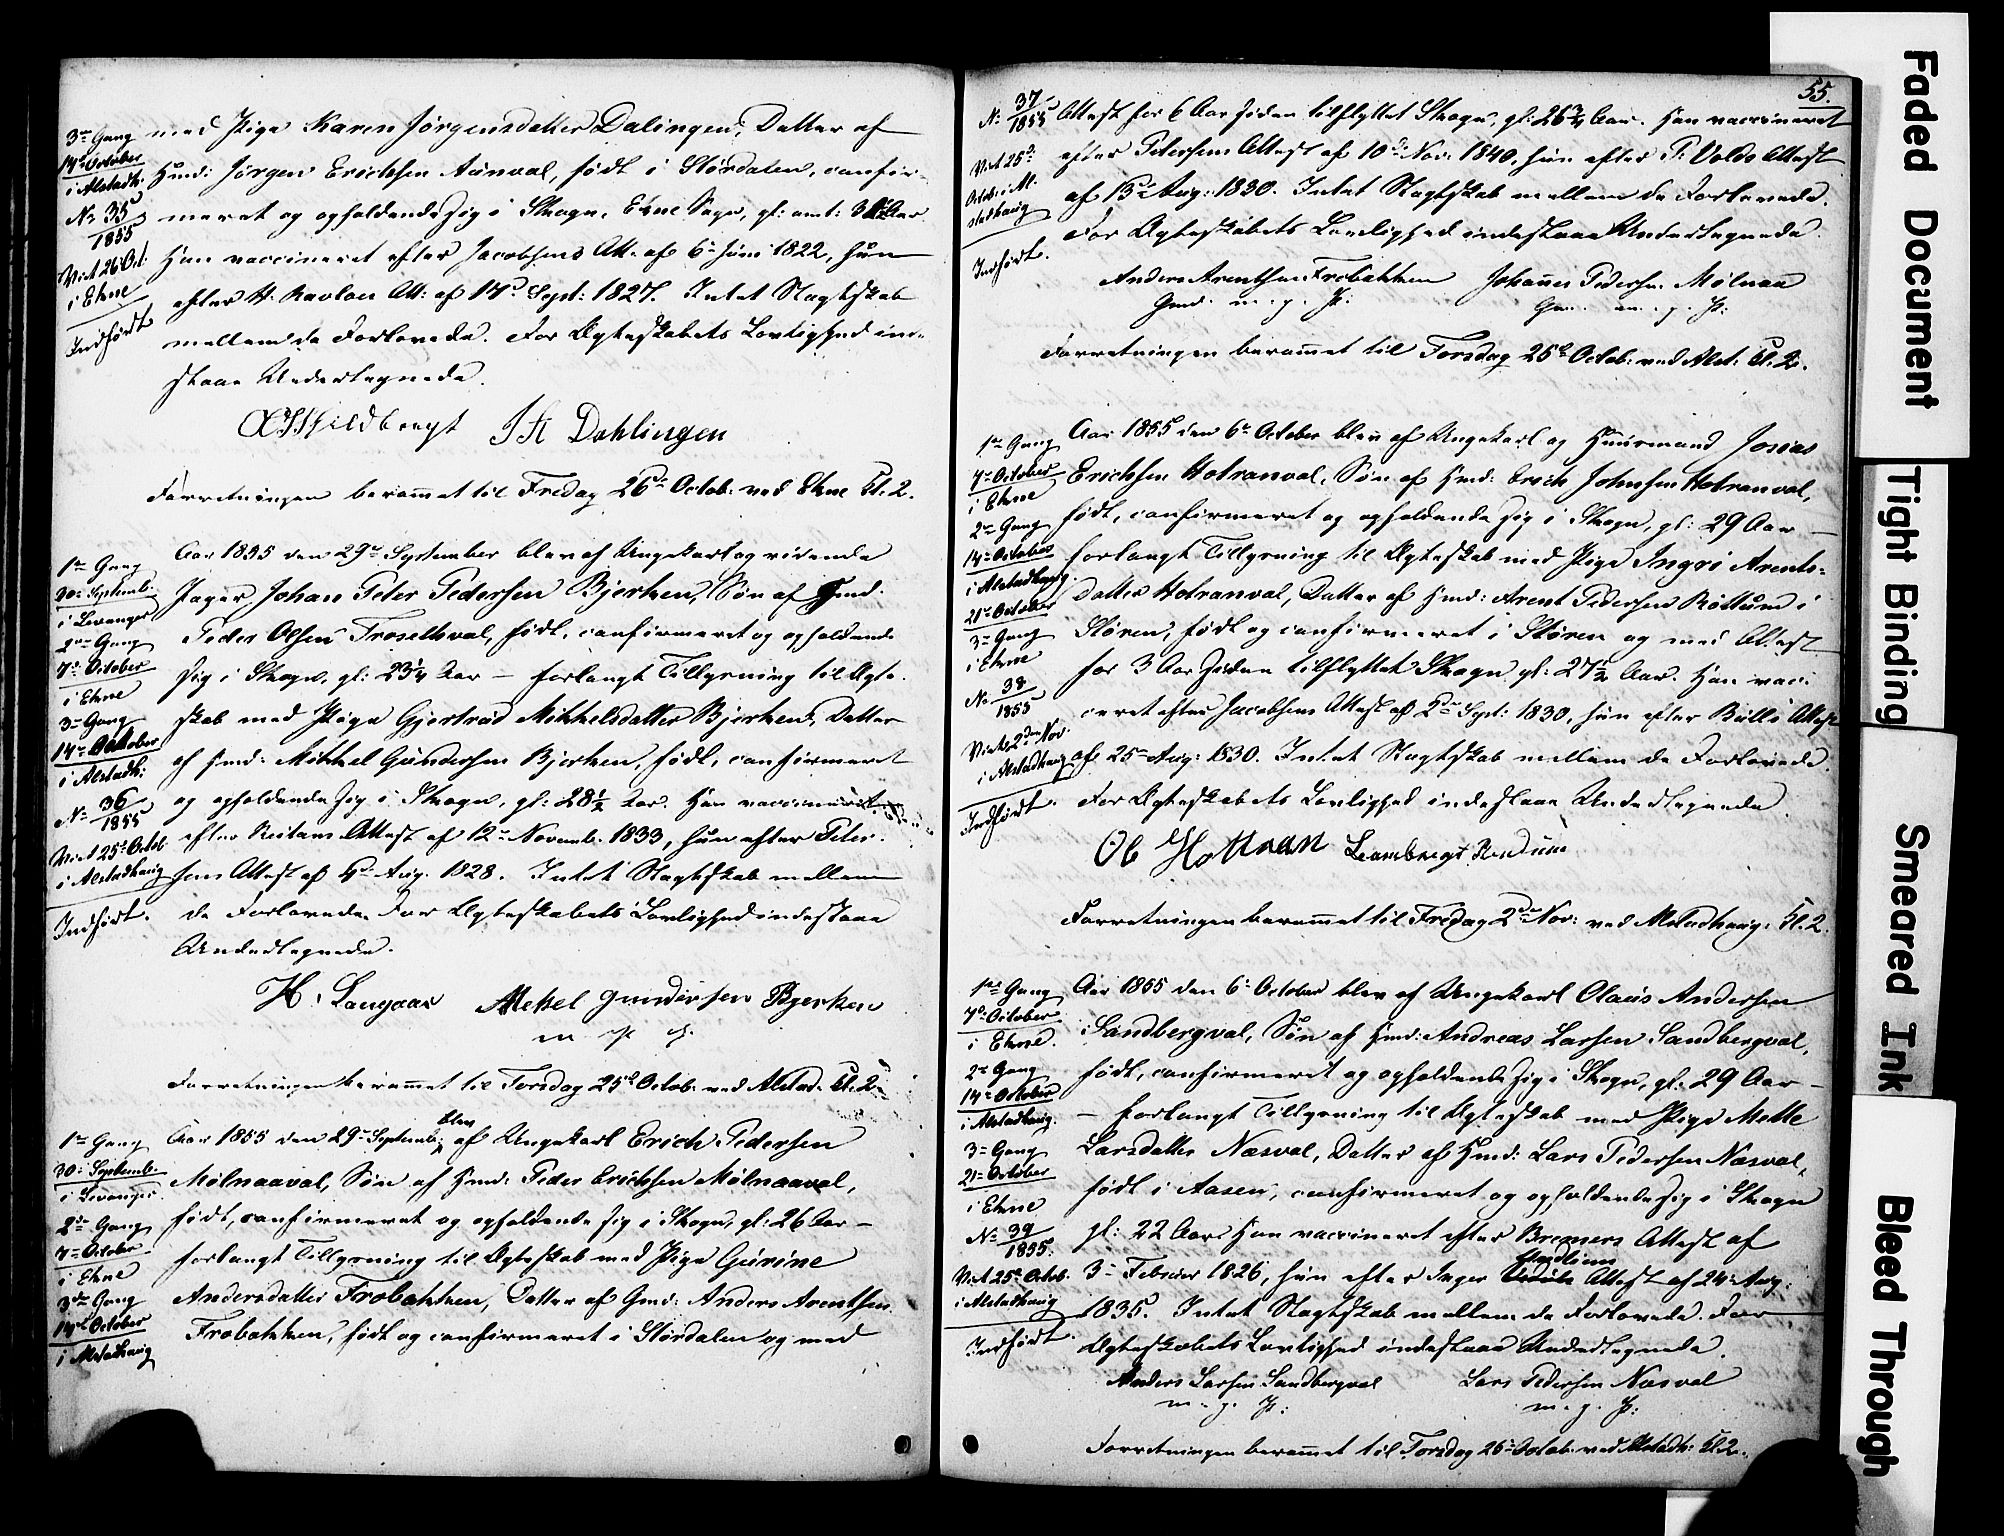 3die Gang
14de October
i Alstadh:
No 35/1855
Viet 26 Oct:
i Ekne
Indført
med Pige Karen Jørgensdatter Dalingen, Datter af
Huusmd: Jørgen Erichsen Aunval, født i Størdalen, confir-
meret og opholdende sig i Skogn, Ekne Sogn, gl: omt:
Han vaccineret efter Jacobsens Att. af 6te Juni 1822, hun
efter H. Att: af 17de Sept: 1827. Intet Slagtskab
mellem de Forlovede. For Ægteskabets Lovlighed inde-
staae Undertegnede.
Dahlingen
Forretningen berammet til Fredag 26de Octob: ved Ekne Kl. 2.
1ste Gang
30te Septemb:
i Levanger
2den Gang
7de October
i Ekne
3die Gang
14de October
i Alstadh:
No 36/1855
Viet 25de Octob.
i Alstadhaug
Indført.
Aar 1855 den 29de September blev af Ungekarl og ridende
Jæger Johan Peter Pedersen Bjerken, Søn af Hmd:
Peder Olsen Troselhval, født, confirmeret og opholdende
sig i Skogn, gl: 23¼ Aar – forlangt Tillysning til Ægte-
skab med Pige Gjertrud Mikkelsdatter Bjerken, Datter
af Hmd: Mikkel Gundersen Bjerken, født, confirmeret
og opholdende sig i Skogn, gl: 28½ Aar. Han vaccineret
efter Reitans Attest af 12te Novemb: 1833, hun efter Peter-
sens Attest af 4de Aug. 1828. Intet Slagtskab mellem
de Forlovede. For Ægteskabets Lovlighed indestaae
Undertegnede.
H. Langaas Mekel Gundersen Bjerken
m. p. P.
Forretningen berammet til Torsdag 25de Octob: ved Alstad. Kl. 2.
1ste Gang
30te Septemb.
i Levanger.
2den Gang
7de October
i Ekne
3die Gang
14de October
i Alstadhaug
Aar 1855 den 29de Septemb: blev af Ungekarl Erich Pedersen
Mølnaaval, Søn af Hmd: Peder Erichsen Mølnaaval,
født, confirmeret og opholdende sig i Skogn, gl: 26 Aar –
forlangt Tillysning til Ægteskab med Pige Gurine
Andersdatter Frobakken, Datter af Gmd: Anders Arentsen
Frobakken, født og confirmeret i Størdalen og med
55.
No 37/1855
Viet 25de
Octob: i Al-
stadhaug
Indført.
Attest for 6 Aar siden tilflyttet Skogn, gl: 26¾ Aar. Han vaccineret
efter Petersens Attest af 10de Nov: 1840, hun efter P. Volds Attest
af 13de Aug: 1830. Intet Slagtskab mellem de Forlovede.
For Ægteskabets Lovlighed indestaae Undertegnede.
Anders Arentsen Frobakken Johannes Pedersen Mølnaa
Gmd. m. p. P: Gm. m. p. P:
Forretningen berammet til Torsdag 25de Octob: ved Alst: Kl. 2.
1ste Gang
7de October
i Ekne
2den Gang
14de October
i Alstadhaug.
21de October
3die Gang
i Ekne
No 38/1855
Viet 2den Nov.
i Alstadhaug
Indført.
Aar 1855 den 6te October blev af Ungekarl og Huusmand Josias
Erichsen Hotranval, Søn af Hmd: Erich Johnsen Hotranval,
født, confirmeret og opholdende sig i Skogn, gl: 29 Aar –
forlangt Tillysning til Ægteskab med Pige Ingri Arents-
datter Hotranval, Datter af Hmd: Arent Pedersen Rottum i
Støren, født og confirmeret i Støren og med Attest
for 3 Aar siden tilflyttet Skogn gl: 27½ Aar. Han vacci
neret efter Jacobsens Attest af 2de Sept: 1830, hun efter Bulls Attest
af 25de Aug: 1830. Intet Slagtskab mellem de Forlovede.
For Ægteskabets Lovlighed indestaae Undertegnede.
Ob Hottran
Forretningen berammet til Fredag 2den Nov: ved Alstadhaug: Kl. 2.
1ste Gang
7de October
i Ekne.
2den Gang
14de October
i Alstadhaug.
3die Gang
21de October
i Ekne
No 39/1855.
Viet 25de Octob.
i Alstadhaug
Indført.
Aar 1855 den 6te October blev af Ungekarl Olaus Andersen
Sandbergval, Søn af Hmd: Andreas Larsen Sandbergval,
født, confirmeret og opholdende sig i Skogn, gl: 29 Aar –
– forlangt Tillysning til Ægteskab med Pige Mette
Larsdatter Næsval, Datter af Hmd: Lars Pedersen Næsval,
født i Aasen, confirmeret og opholdende sig i Skogn
gl: 22 Aar. Han vaccineret efter Bremers Attest af
3die Februar 1826, hun efter Inger Attest af 24de Aug:
1835. Intet Slagtskab mellem de Forlovede. For
Ægteskabets Lovlighed indestaae Undertegnede.
Anders Larsen Sandbergval Lars Pedersen Næsval
m. p. P: m. p. P:
Forretningen berammet til Torsdag 25de Octob: ved Alstadh: Kl. 2.
Faded Document
Tight Binding
Smeared Ink
Bleed Through